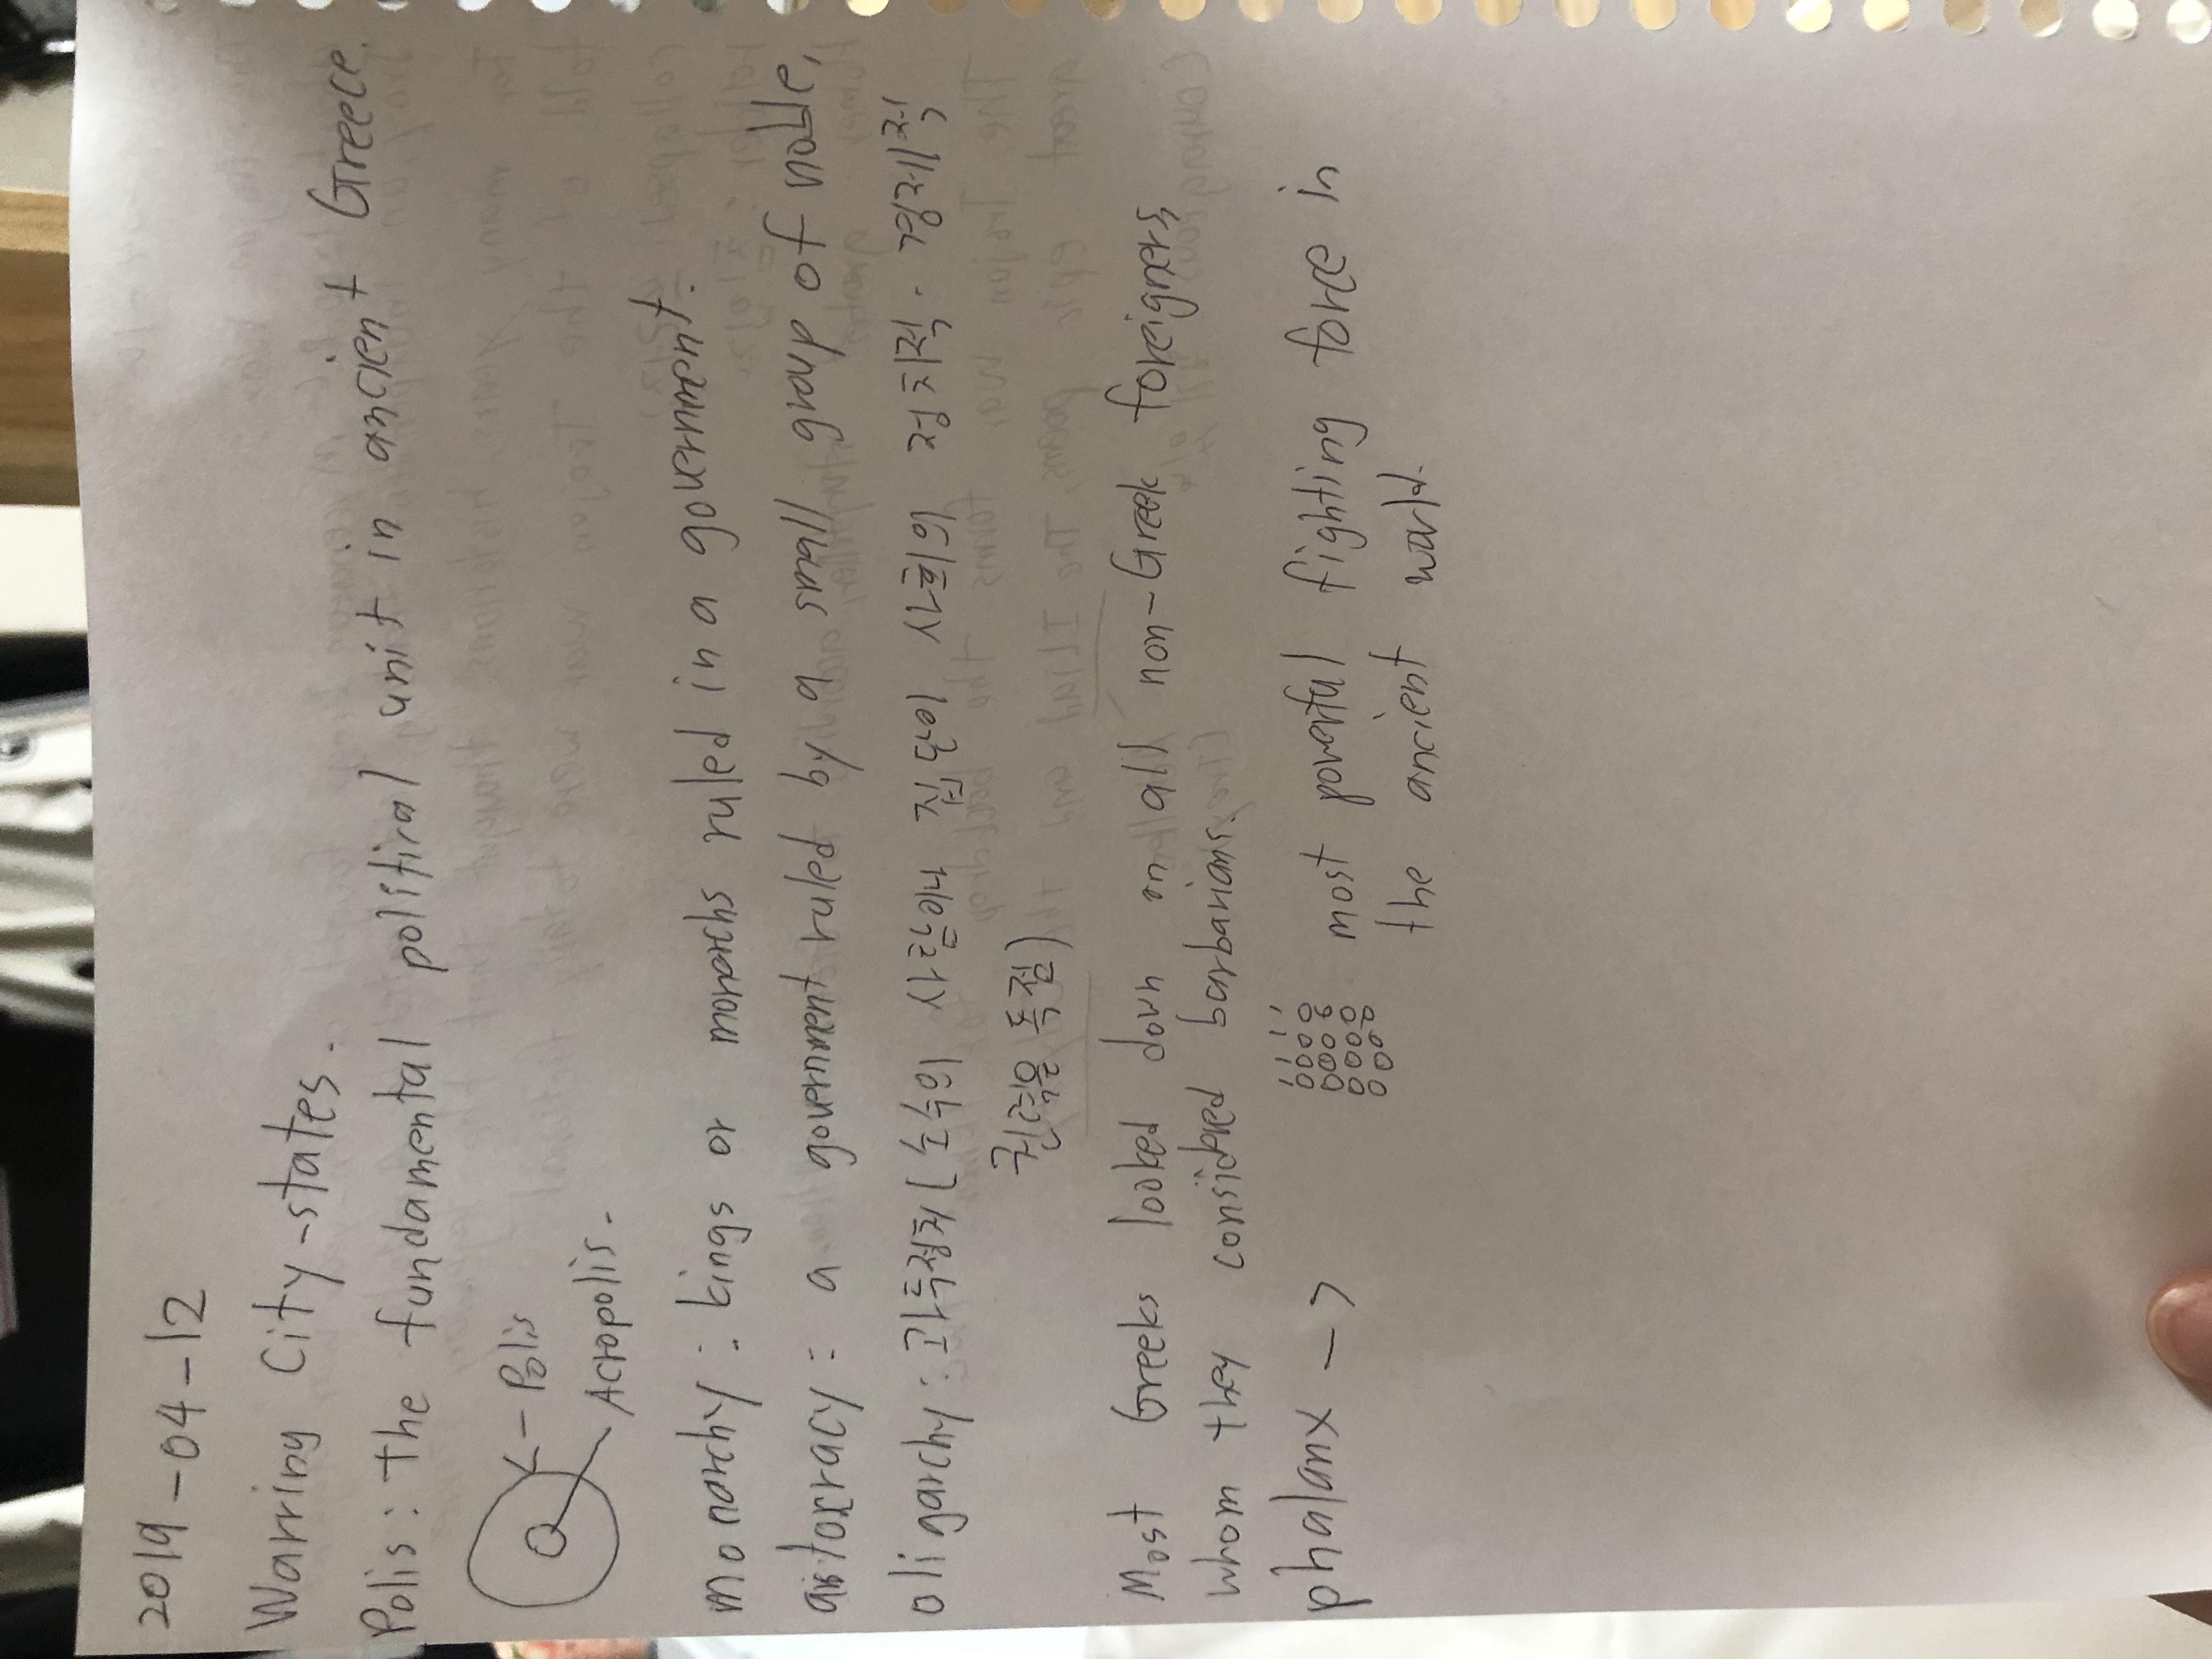 2019-04-12
Warring City-states.
Polis: the fundamental political unit in ancient Greece.
← Polis
Acropolis.
monarchy: kings or monarchs ruled in a government.
aristocracy: a government ruled by a small group of noble,
oligarchy: 과두정치(소수의 사람이나 집단이 사회의 정치적·경제적
권력을 독점)
Most Greeks looked down on all non-Greek foreigners
whom they considered barbarians.
phalanx → most powerful fighting force in
the ancient world.